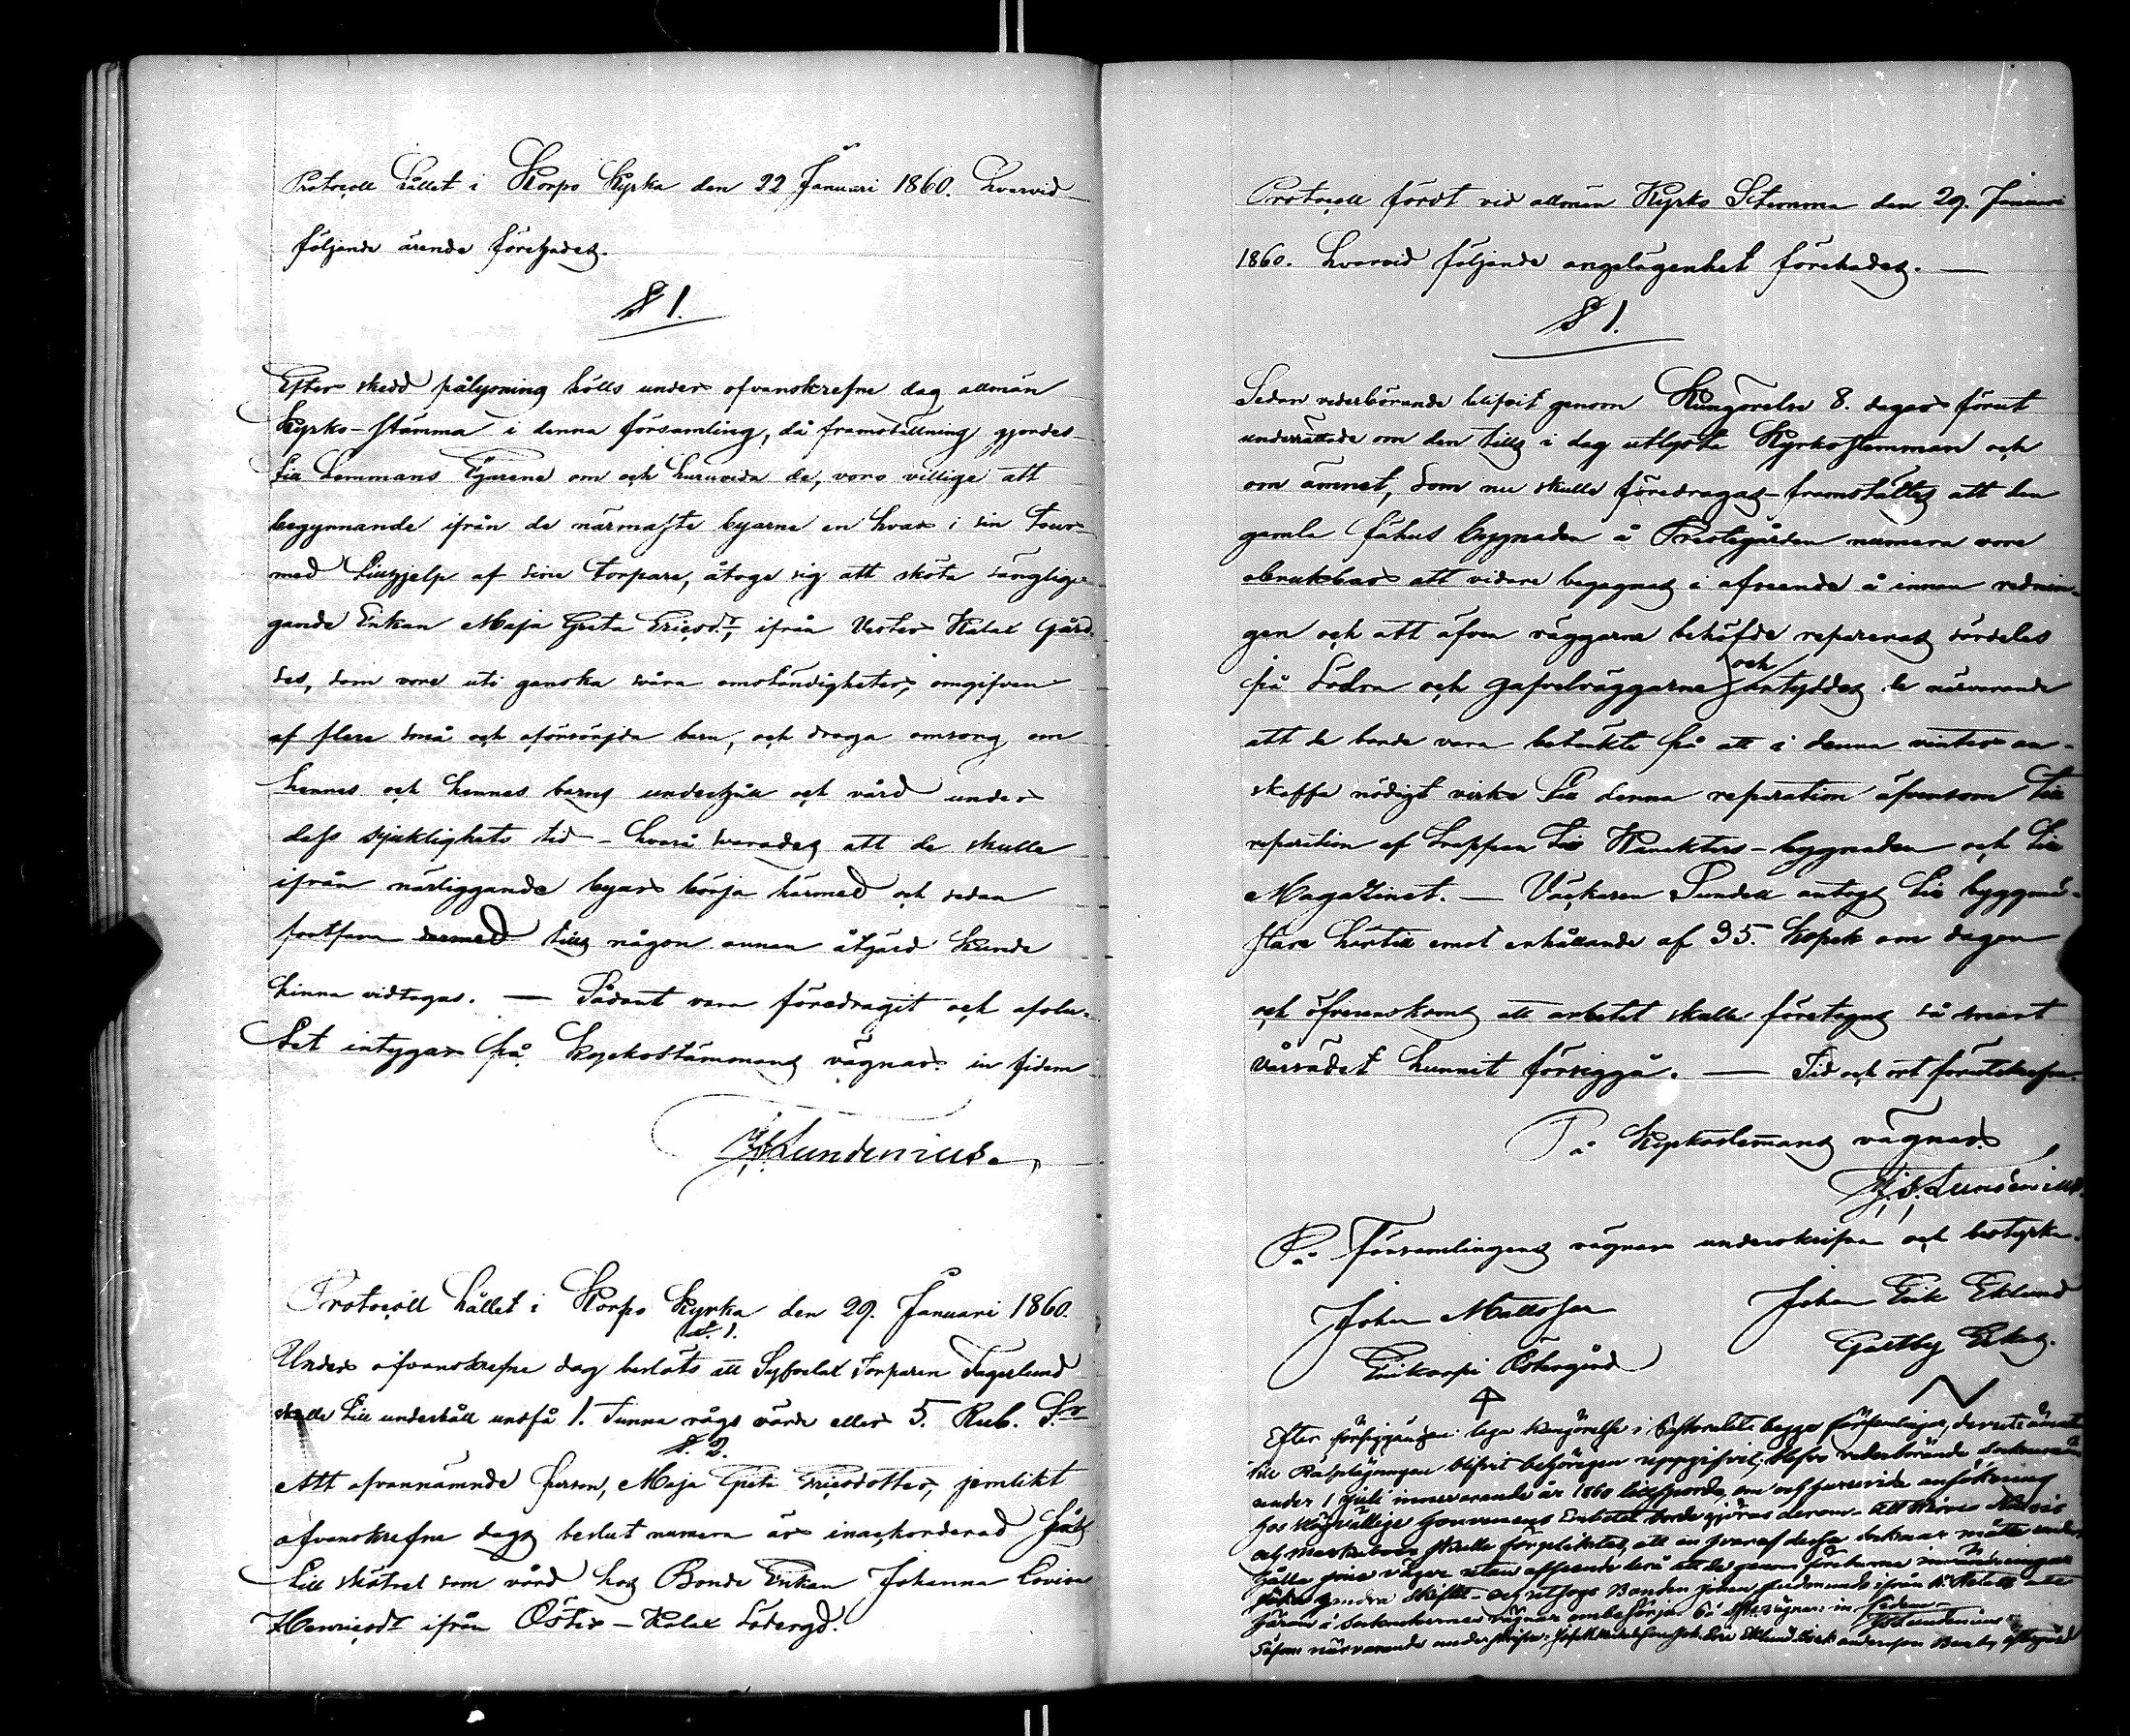 Protocoll hållet i Korpo Kyrka den 22 Januari 1860. hvarvid
följande ärende företades.
§ 1.
Efter skedd pålysning hölls under ofvanskrefne dag allmän
Kyrko-stämma i denna församling, då framställning gjordes
till hemmans Egarene om och huruvida de, voro villige att
begynnande ifrån de närmaste byarne en hvar i sin tour
med tillhjelp af sine torpare, åtoge sig att sköta sänglig-
gande Enkan Maja Greta Ericsdr, ifrån Vester Kalax Gård
ses, som vore uti ganska svåra omständigheter, omgifven
af flere små och oförsörjda barn, och draga omsorg om
hennes och hennes barns underhåll och vård under
dess sjuklighets tid - hvarå svarades att de skulle
ifrån närliggande byar börja härmed och sedan
fortfara dermed tills någon annan åtgärd kunde
hinna vidtagas. — Sådant vara föredragit och afslu-
tet intygar på Kyrkostämmans vägnar. in fidem
J. Lundenius.
Protocoll hållet i Korpo Kyrka den 29. Januari 1860.
§. 1.
Under ofvanskrefne dag beslöts att Torparen Fagerlund
skulle till underhåll undfå 1. Tunna rågs värde eller 5. Rub. Sr
§. 2.
Att ofvannämnde person, Maja Greta Ericsdotter, jemlikt
ofvanskrefne dags beslut numera är inackorderad
till skötsel som vård hos Bonde Enkan Johanna Lovisa
Henricsdr ifrån Öster-Kalax Södergd.
Protocoll fördt vid allmän Kyrko Stemma den 29. Januari
1860. hvarvid följande angelägenhet förehades. —
§ 1.
Sedan vederbörande blifvit genom Kungörelse 8. dagar förut
underrättade om den tills i dag utlysta Kyrkostemman och
om ämnet, som nu skulle föredragas - framställtes att den
gamla fähus byggnaden å Prestegården numera vore
obrukbar att vidare begagnas i afseende å innan rednin-
gen och att äfven väggarne behöfde repareras särdeles
på Södra och gafvelväggarne och antyddes de närvarande
att de borde vara betänkte på att i denna vinter an-
skaffa nödigt virke till denna reparation äfvensom till
reparation af trappan till Karakters-byggnaden och till
Magazinet. — Väckaren Sundell antogs till byggmä-
stare härtill emot erhållande af 35. Kopek om dagen
och öfverenskoms att arbetet skulle företagas så snart
vårsådet hunnit försiggå. — Tid och ort förutskrefne.
På Kyrkostemans vägnar
J. Lundenius.
På Församlingens vägnar underskrifva och bestyrka.
Johan Mattsson
Johan Erik Eklund
Östergård
Gårdby
Efter försiggången laga kungörelse i Pastoratets begge församlingar, derute ämnet
till Rådplägningen blifvit behörigen uppgifvit; blefvo vederbörande
under 1 Juli innevarande år 1860 tillsporde, om och huruvida ansökning
hos Höfvällige Gouvernens Embetet borde göras derom att
och skulle förpliktas, att en hvar af dessa socknar måtte under-
hålla sine vägar utan afseende derå att de genom
andra skiften - och utsågs Bonden Johan ifrån
häruti å socknarnes vägnar ombesörja. På vägnar: in fidem
Lundenius
Såsom närvarande underskrifva: Eklund